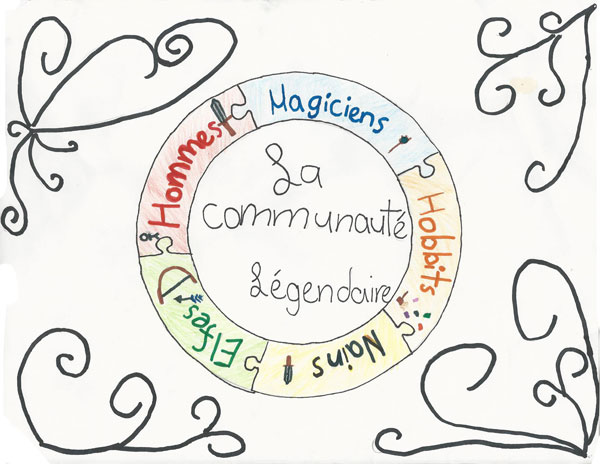 Magiciens
Hommes
Hobbits
Nains
Elfes
La
communauté
Légendaire